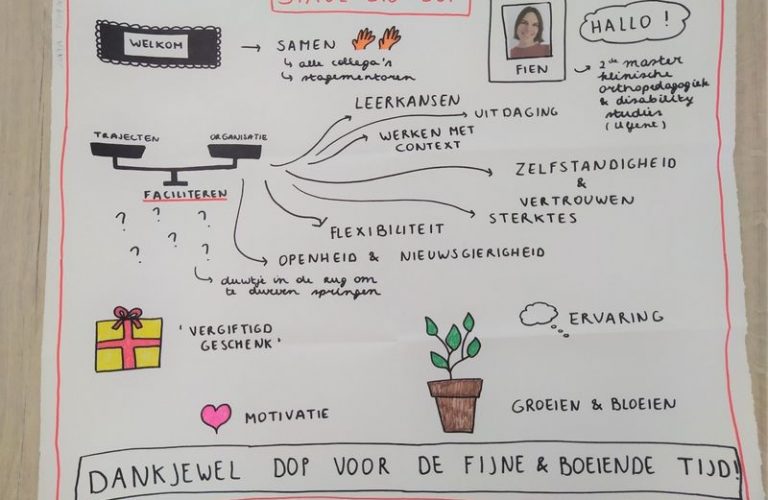 STAGE BIJ DOP
WELKOM
→ SAMEN
↳ alle collega's
↳ stagementoren
FIEN
HALLO !
2de master
klinische
orthopedagogiek
& disability
studies
(UGent)
TRAJECTEN
ORGANISATIE
FACILITEREN
LEERKANSEN
UITDAGING
WERKEN MET
CONTEXT
ZELFSTANDIGHEID
&
VERTROUWEN
STERKTES
FLEXIBILITEIT
OPENHEID & NIEUWSGIERIGHEID
? ? ? ? ? ?
↳ duwtje in de rug om
te durven springen
'VERGIFTIGD
GESCHENK'
ERVARING
MOTIVATIE
GROEIEN & BLOEIEN
DANKJEWEL DOP VOOR DE FIJNE & BOEIENDE TIJD!